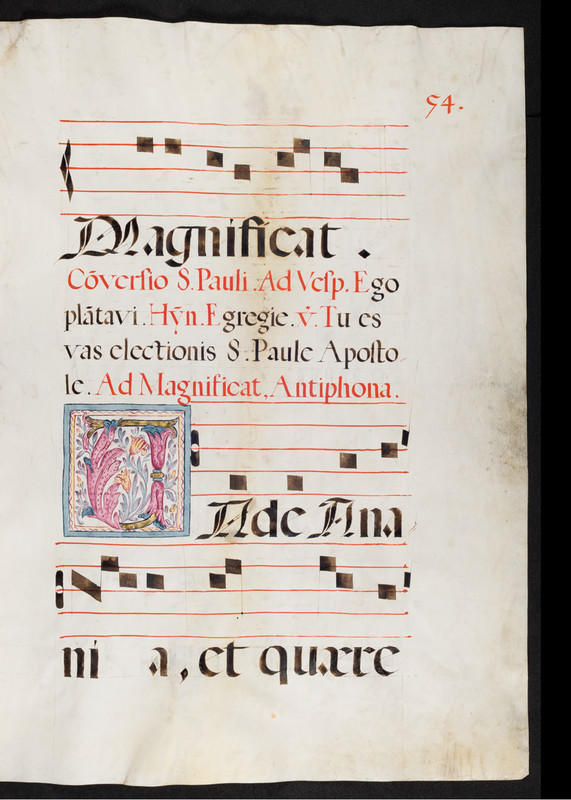 54.
Magnificat.
Cōverſio S. Pauli. Ad Veſp. Ego
plātavi. Hȳn. Egregie. v̇. Tu es
vas electionis S. Paule Apoſto
le. Ad Magnificat, Antiphona.
VAde Ana
ni a, et quære